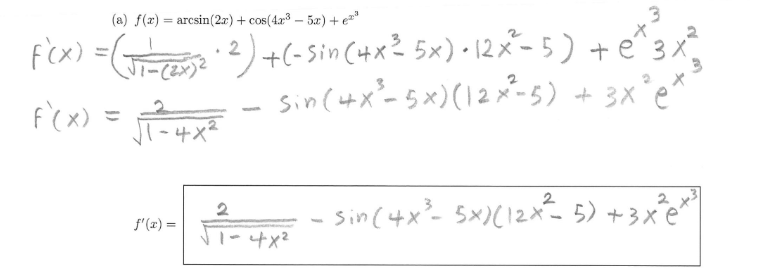 (a) f(x) = arcsin(2x) + cos(4x³ − 5x) + e^{x³}
f'(x) = (1/√(1−(2x)²) · 2) + (−sin(4x³−5x) · 12x²−5) + e^{x³} 3x²
f'(x) = 2/√(1−4x²) − sin(4x³−5x)(12x²−5) + 3x² e^{x³}
f'(x) = 2/√(1−4x²) − sin(4x³−5x)(12x²−5) + 3x² e^{x³}